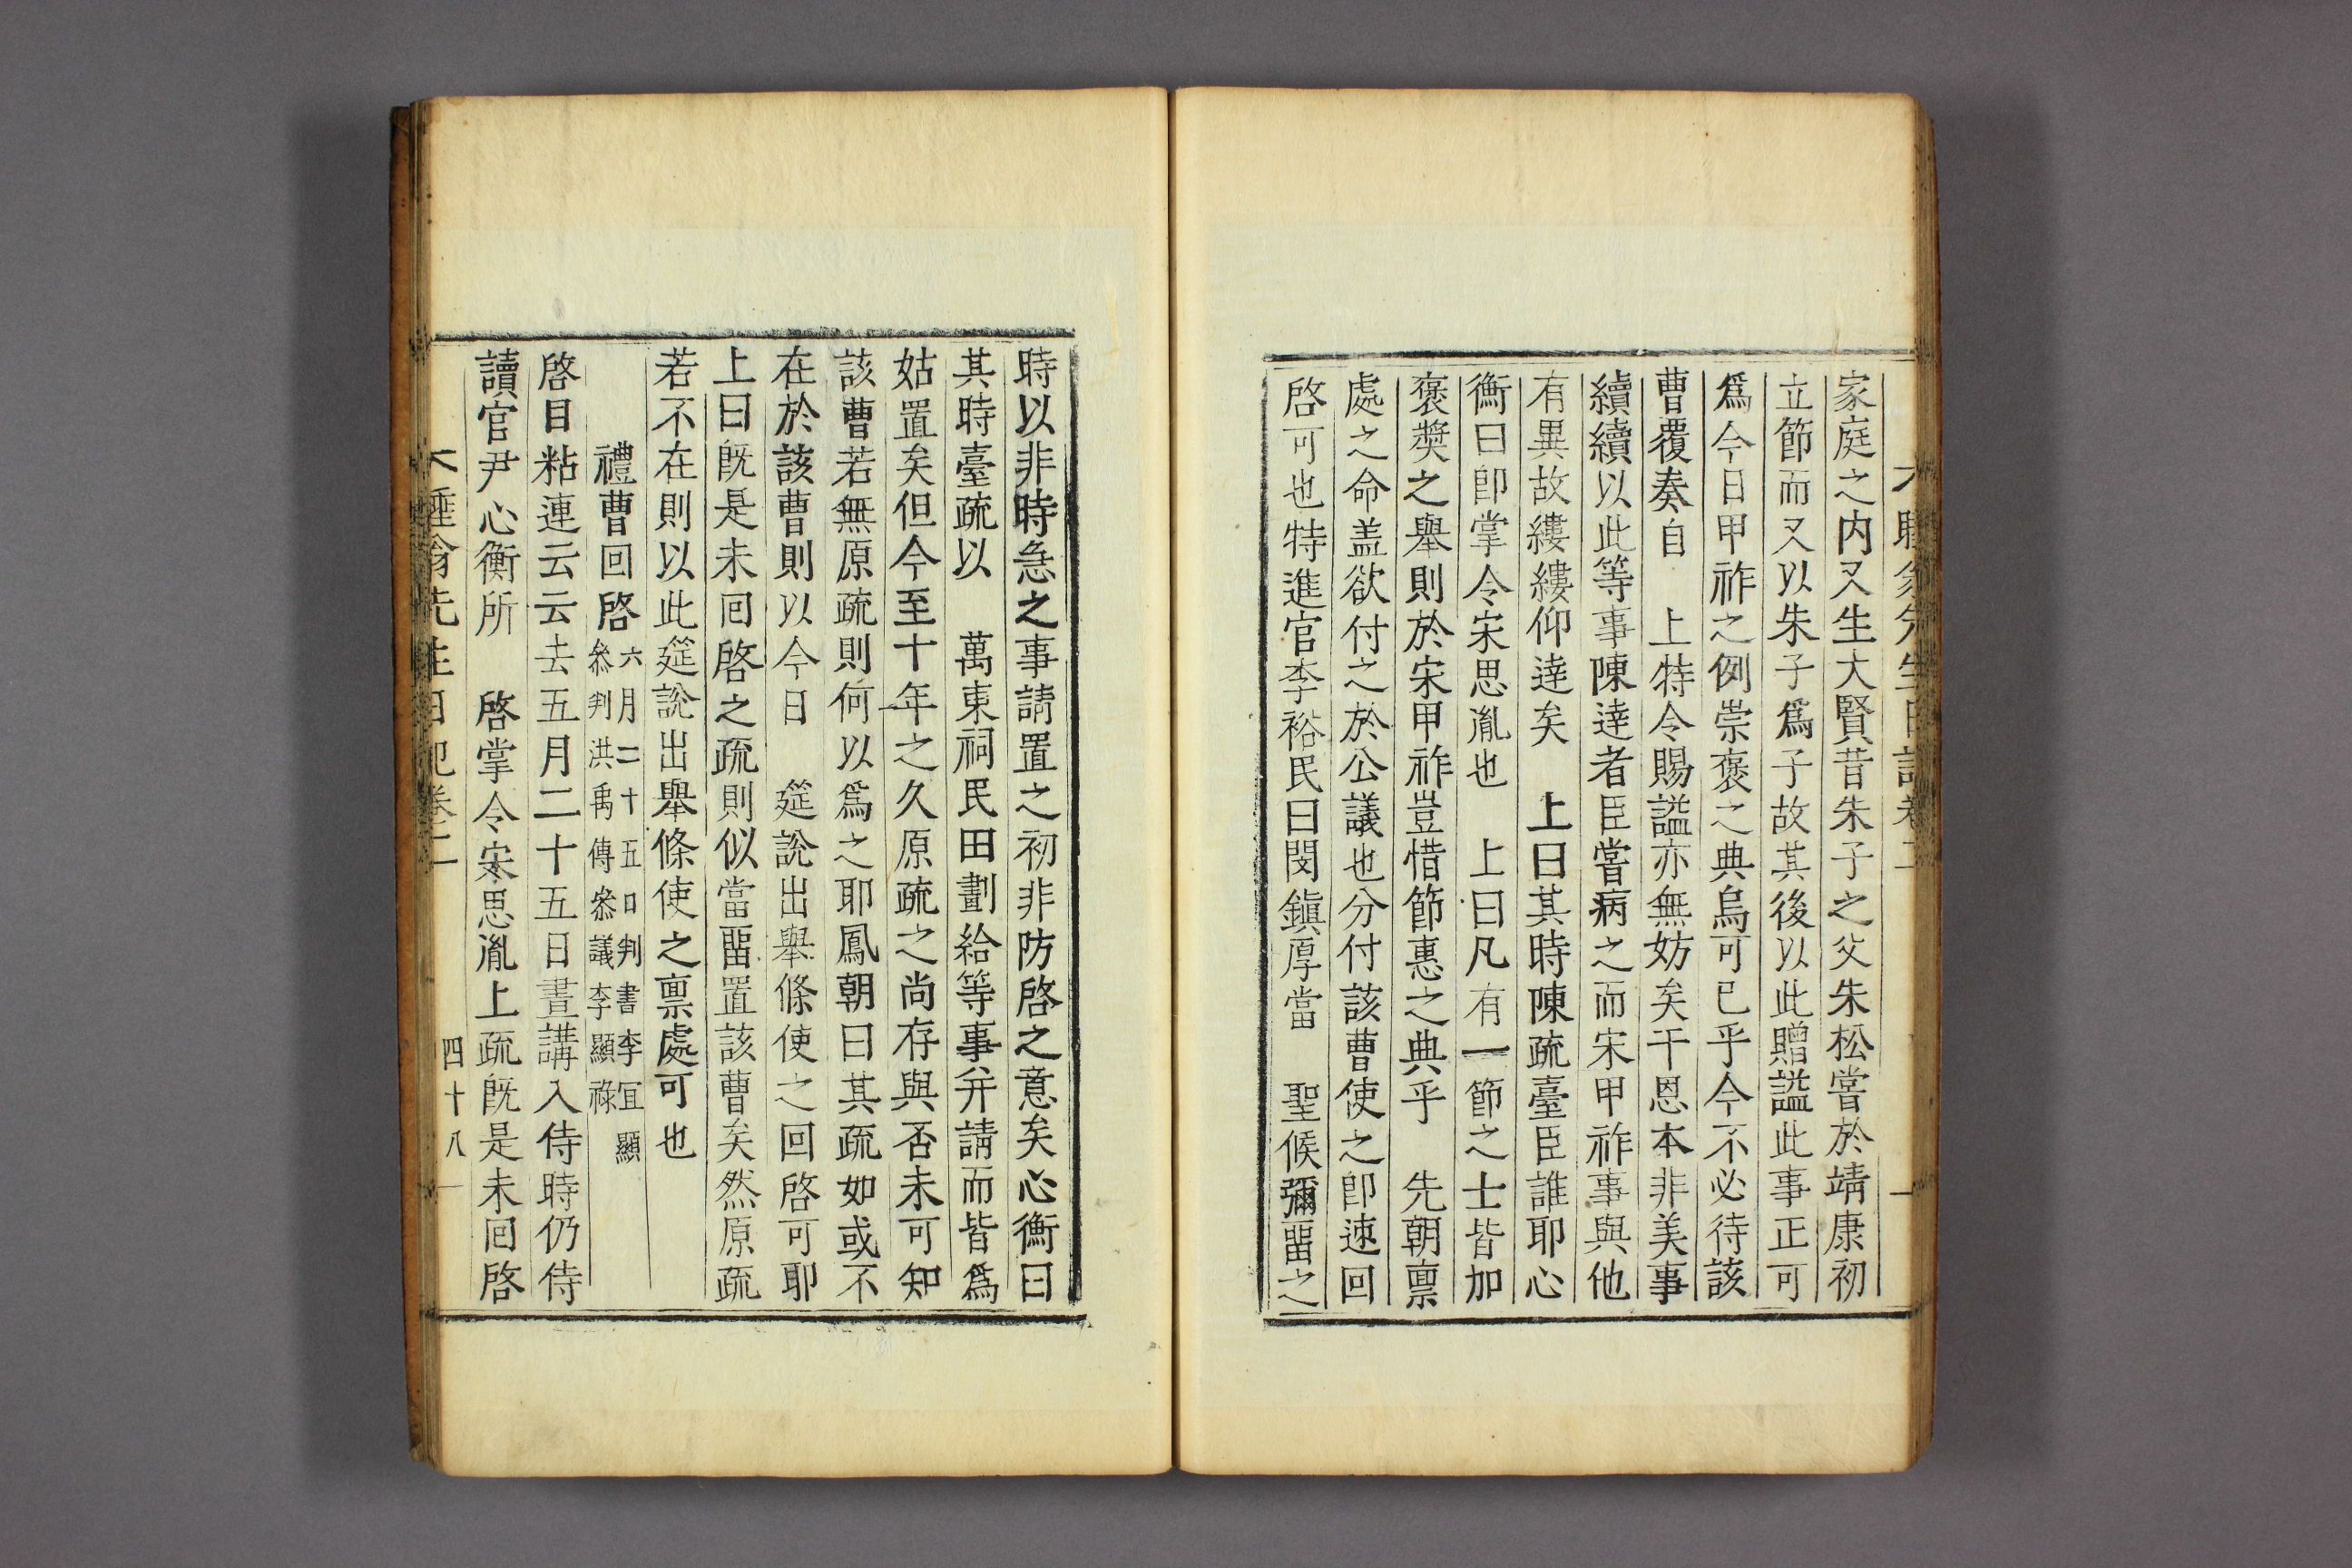 家庭之內又生大賢昔朱子之父朱松嘗於靖康初
立節而又以朱子爲子故其後以此贈諡此事正可
爲今日甲祚之例崇褒之典烏可已乎今不必待該
曹覆奏自 上特令賜諡亦無妨矣干恩本非美事
續續以此等事陳達者臣嘗病之而宋甲祚事與他
有異故縷縷仰達矣 上曰其時陳疏臺臣誰耶心
衡曰卽掌令宋思胤也 上曰凡有一節之士皆加
褒奬之舉則於宋甲祚豈惜節惠之典乎 先朝稟
處之命盖欲付之於公議也分付該曹使之卽速回
啓可也特進官李裕民曰閔鎭厚當 聖候彌留之
時以非時急之事請置之初非防啓之意矣心衡曰
其時臺疏以 萬東祠民田劃給等事弁請而皆爲
姑置矣但今至十年之久原疏之尚存與否未可知
該曹若無原疏則何以爲之耶鳳朝曰其疏如或不
在於該曹則以今日 筵說出舉條使之回啓可耶
上曰旣是未回啓之疏則似當留置該曹矣然原疏
若不在則以此筵說出舉條使之稟處可也
禮曹回啓六月二十五日判書李宜顯
叅判洪禹傳叅議李顯祿
啓目粘連云云去五月二十五日晝講入侍時仍侍
讀官尹心衡所 啓掌令宋思胤上疏旣是未回啓
先生日記卷二 四十八